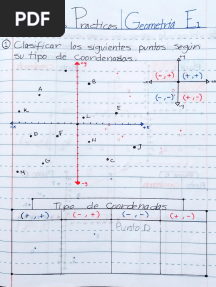 PDF
Practicas | Geometría E₁
① Clasificar los siguientes puntos según
su tipo de coordenadas.
+y
(-,+) (+,+)
(-,-) (+,-)
A
B
K
E
L
D
F
H
J
G
C
-y
Tipo de Coordenadas
(+,+) (-,+) (-,-) (+,-)
Punto D